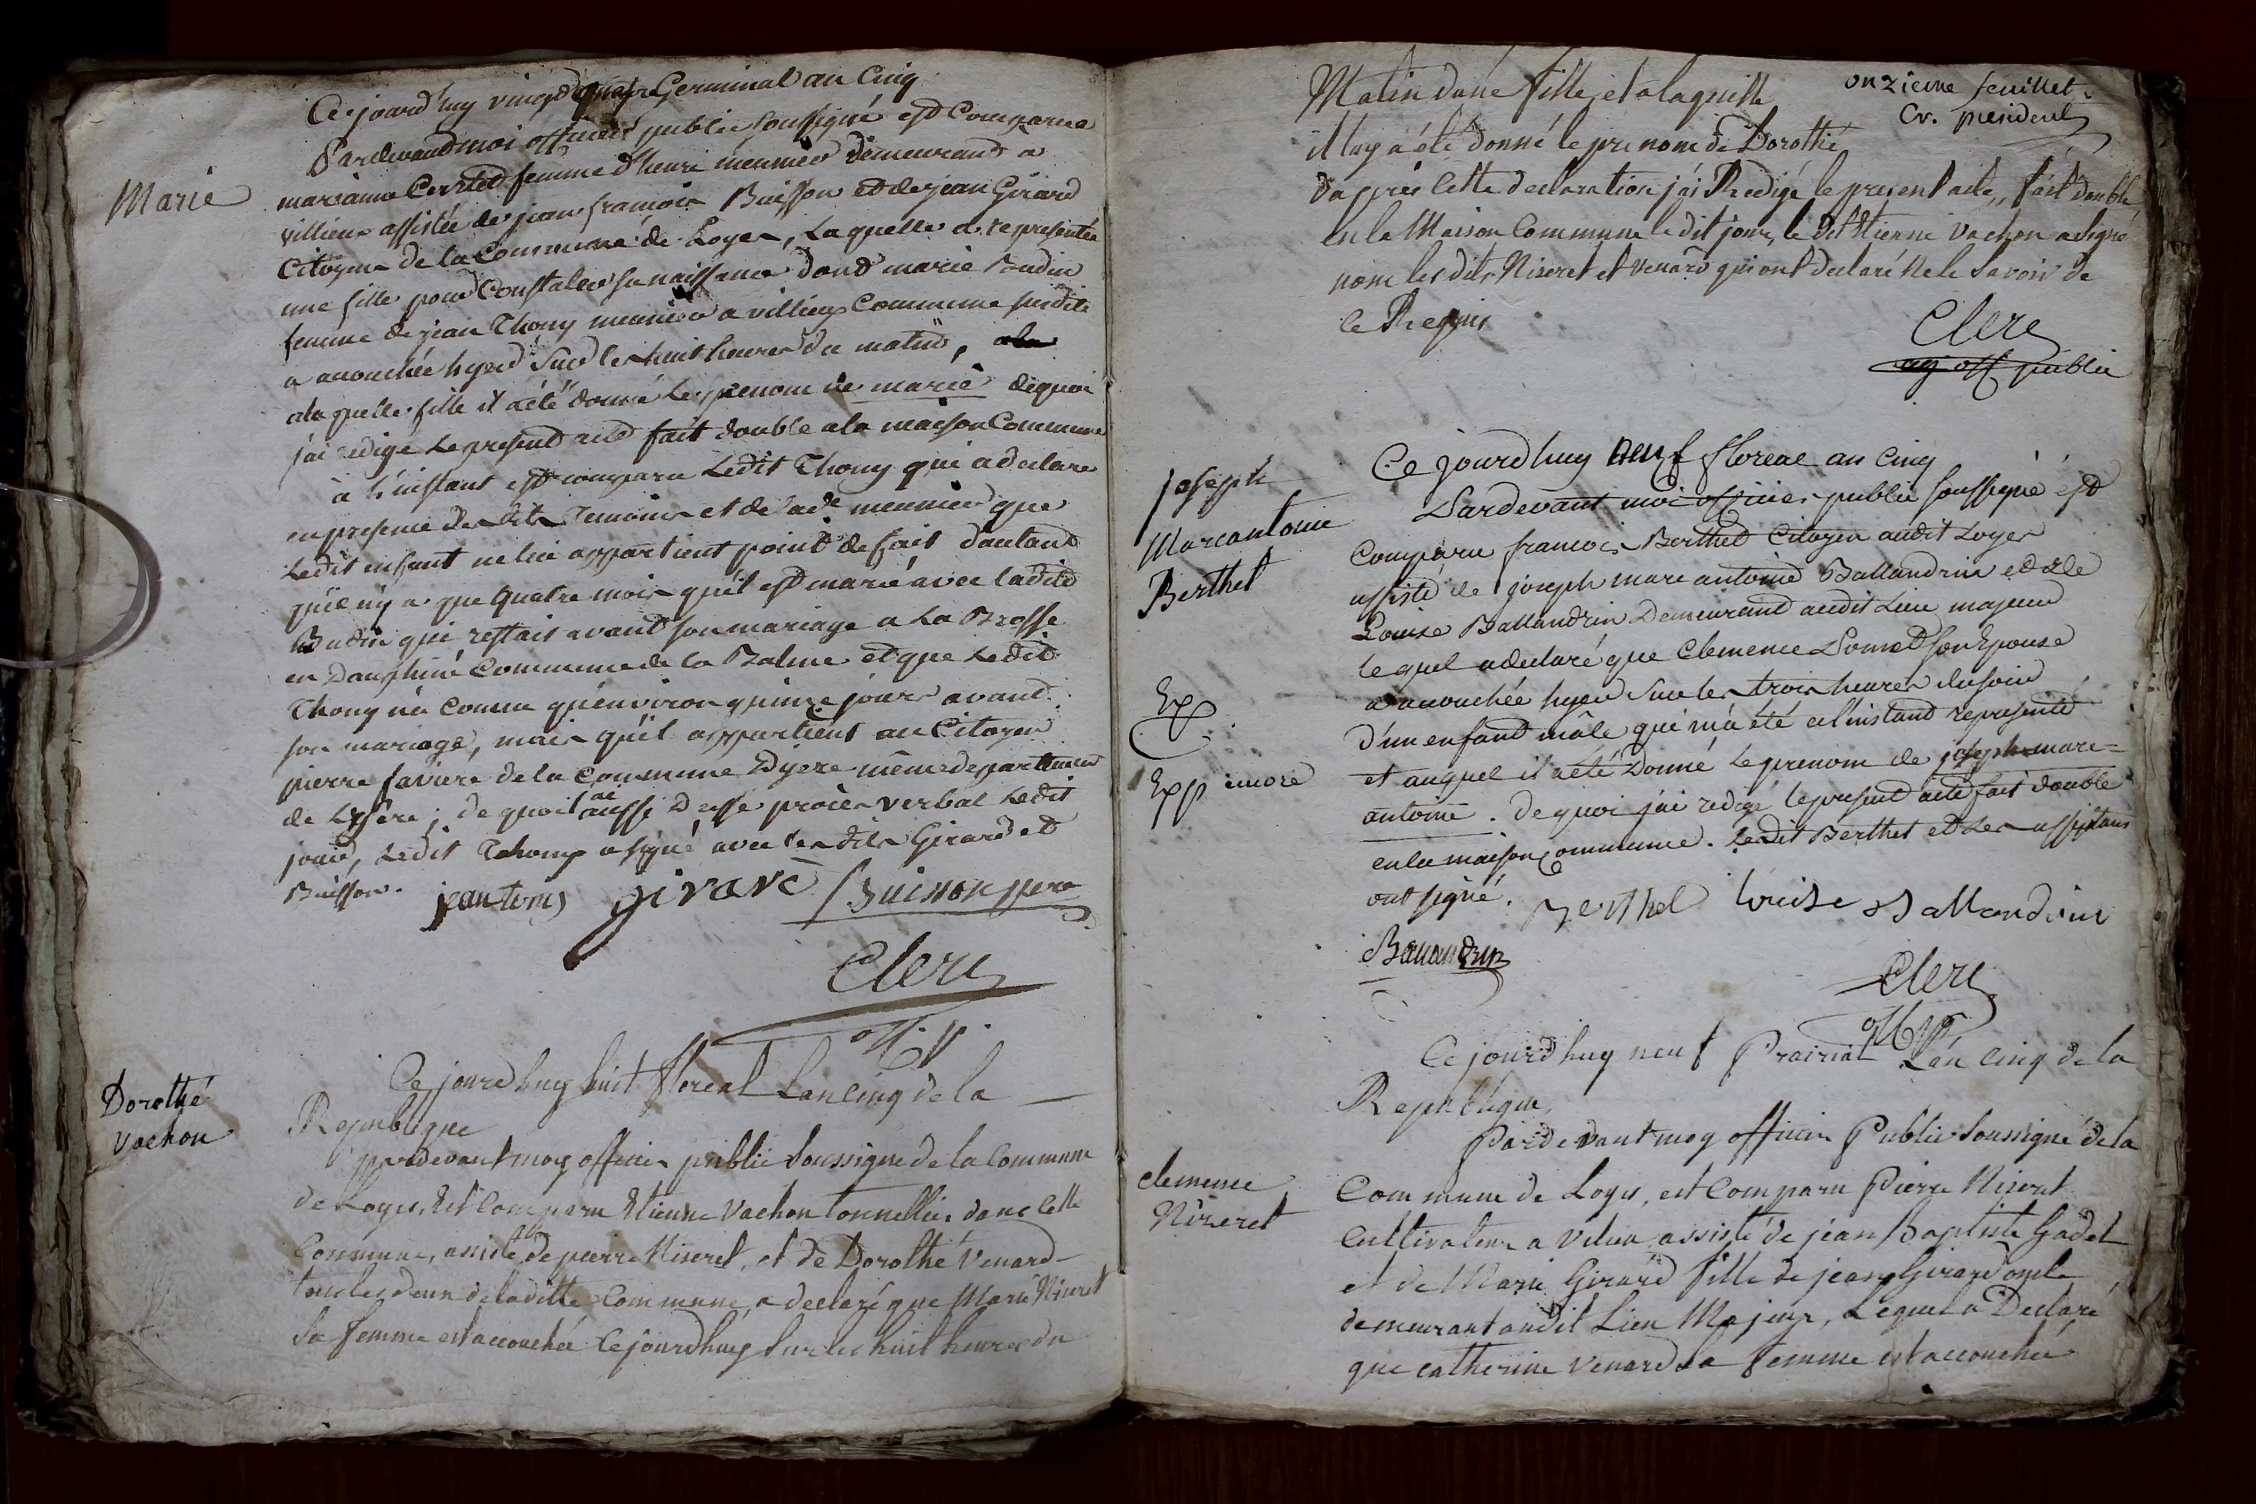 Marie
Ce jourd'huy vingt quatre Germinal an Cinq
Pardevant moi officier public soussigné est Comparue
marianne femme d'henri meunier demeurant a
villieu assistée de jean francois Buisson et de jean Girard
Citoyens de la Commune de Loyes, Laquelle a representée
une fille pour Constater sa naissance dont marie Budin
femme de jean Thony meunier a villieu Commune susdite
a accouchée hyer Sur les huit heures du matin,
ala quelle fille il a été donné Le prenom de marie dequoi
j'ai redigé Le present acte fait double a la maison Commune
à L'instant est comparu Ledit Thony qui a declaré
en presence des dits Temoins et de lade meunier que
Ledit enfant ne lui appartient point de fait d'autant
qu'il n'y a que quatre mois qu'il est marié avec ladite
Budin qui restait avant son mariage a La Brosse
en Dauphiné Commune de la Balme et que Ledit
Thony n'a connu qu'environ quinze jours avant
son mariage, mais qu'il appartient au Citoyen
pierre faviere de la Commune Dyere même departement
de Lysere ; de quoi j'ai aussi Dressé procès verbal Ledit
jour, Ledit Thony a signé avec les dits Girard et
Buisson.
jean tonis girard Buisson pere
Clerc
off. p.
Dorothé
Vachon
Ce jourd huy huit floreal Lan Cinq de la
Republique
pardevant moy officier public Soussigné de la Commune
de Loyes, Est Comparu Etienne Vachon tonnellier dans Cette
Commune, assisté de pierre Niseret, et de Dorothé Venard
tous les deux de laditte Commune, a declaré que Marie Niseret
Sa femme est accouchée Cejourdhuy Sur les huit heures du
onzieme feuillet
Cr. president
Matin dune fille, et a laquelle
il luy a été Donné le prenom de Dorothé
Dapprès Cette declaration j'ai Redigé le present acte, fait double
en la Maison Commune le dit jour, le dit Etienne Vachon a signé
nom les dits Niseret et Venard qui ont declaré ne le Savoir de
ce Requis
Clerc
ag off public
joseph
Marc antoine
Berthet
Exp.
Exp encore
Ce jourd huy neuf floreal an cinq
Pardevant moi officier public soussigné est
Comparu francois Berthet Citoyen audit Loyes
assisté de joseph marc antoine Ballandrin et de
Louise Ballandrin Demeurant audit Lieu majeurs
le quel a declaré que Clemence son Epouse
a accouchée hyer Sur les trois heures du soir
d'un enfant mâle qui m'a été a l'instant representé
et auquel il a été Donné Le prenom de joseph marc=
antoine. De quoi j'ai redigé le present acte fait double
en la maison Commune. Ledit Berthet et Les assistans
ont signé.
Berthet Louise Ballandrin
Ballandrin
Clerc
off p
clemence
Niseret
Ce jourd huy neuf Prairial Lan cinq de la
Republique,
Pardevant moy officier Public Soussigné de la
Commune de Loyes, est Comparu Pierre Niseret
Cultivateur a Vilieu assisté de jean Baptiste Gadet
et de Marie Girard fille de jean Girard
demeurant audit Lieu Majeurs, Lequel a Declaré
que Catherine Venard sa femme est accouchée